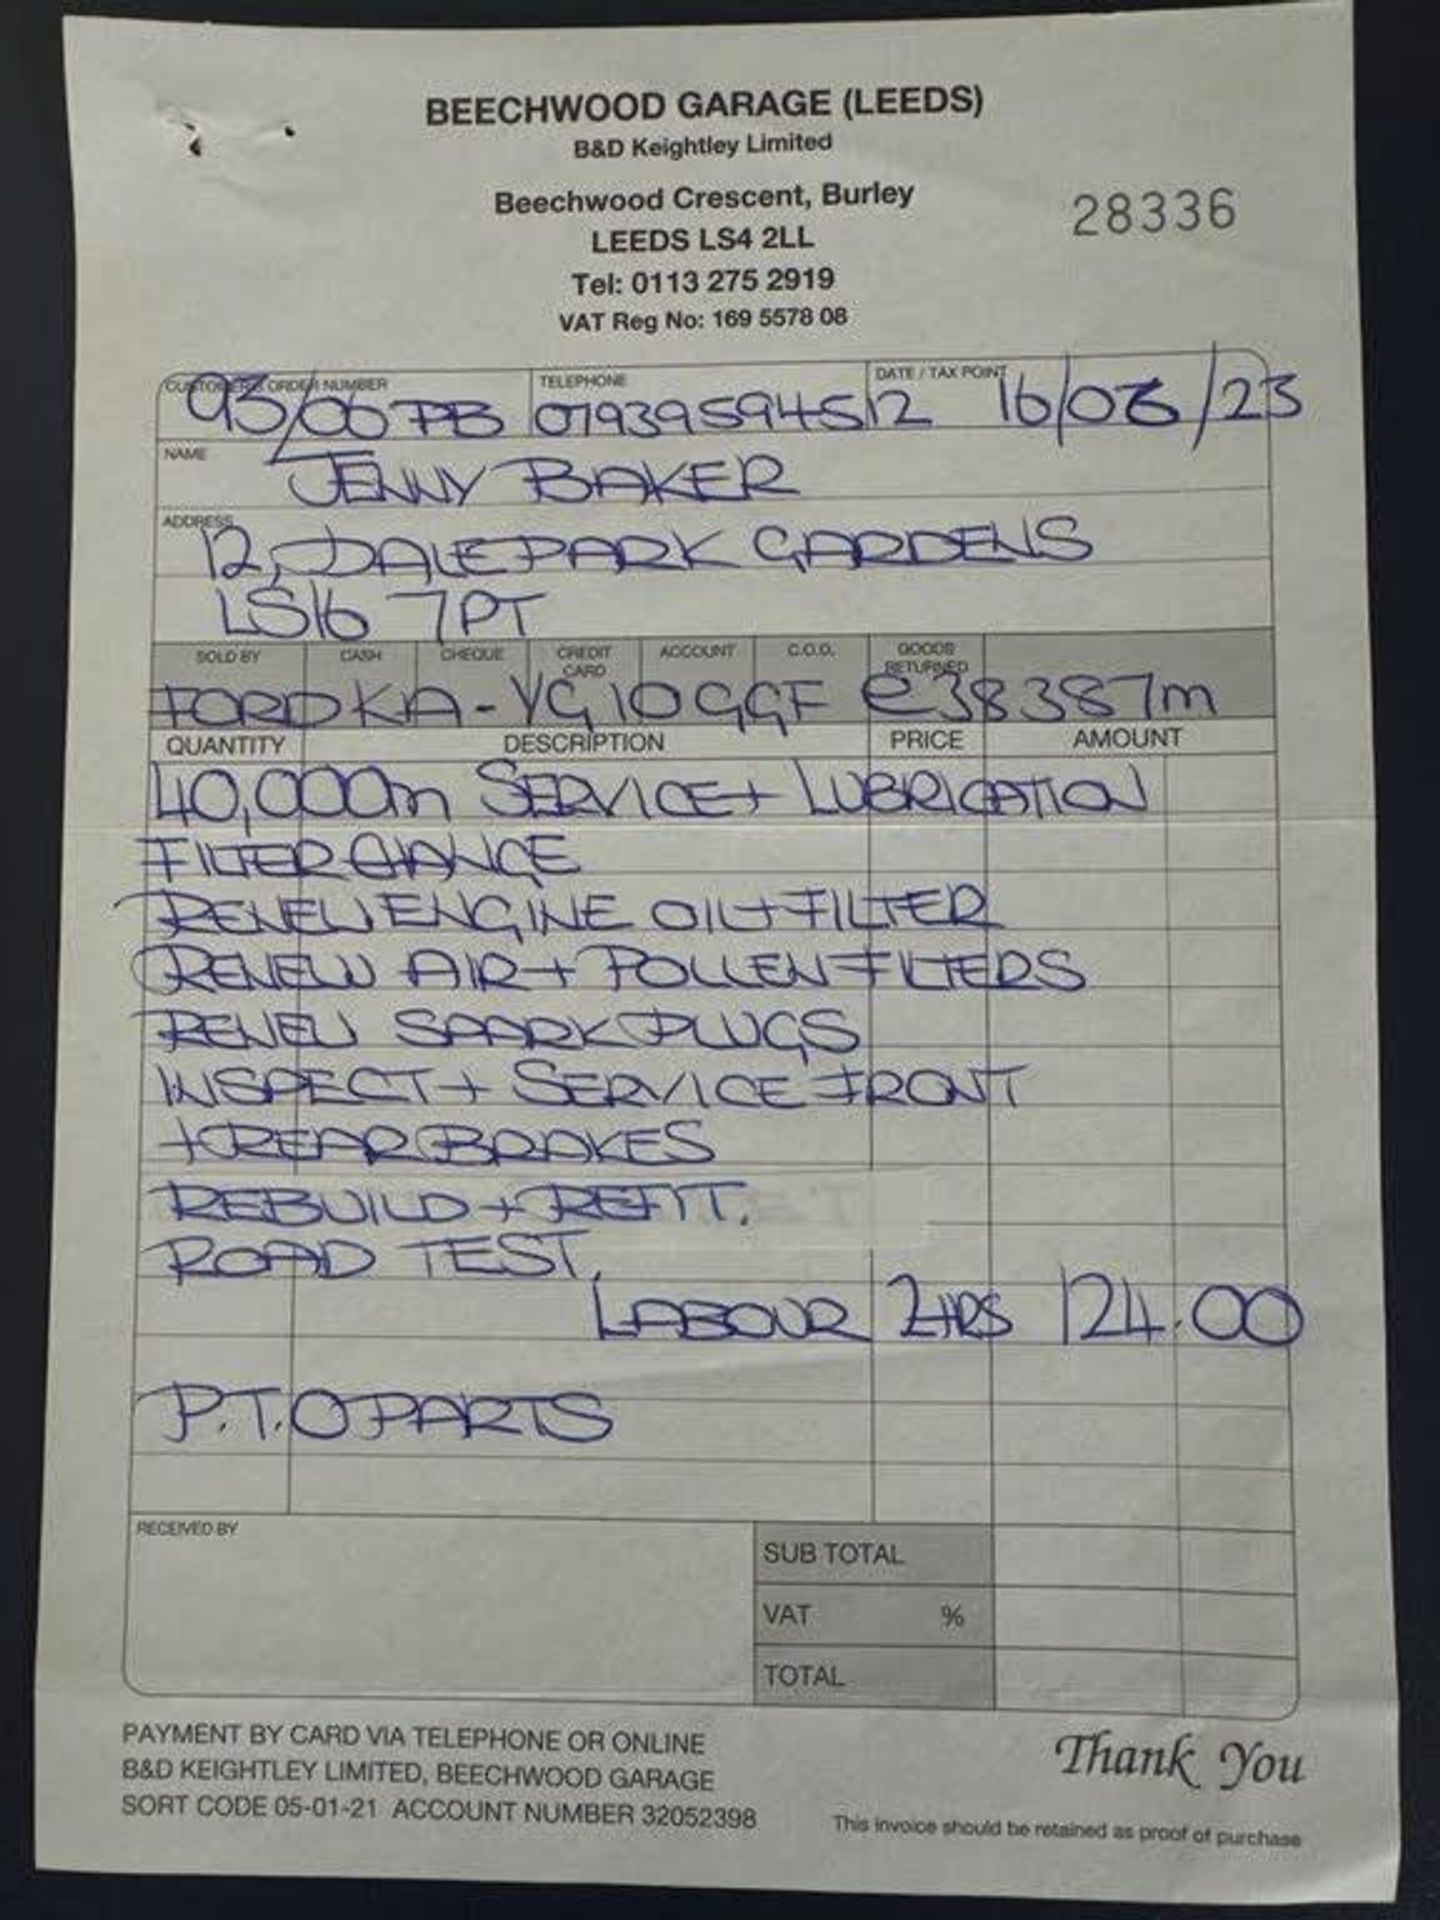 BEECHWOOD GARAGE (LEEDS)
B&D Keightley Limited
Beechwood Crescent, Burley
28336
LEEDS LS4 2LL
Tel: 0113 275 2919
VAT Reg No: 169 5578 08
CUSTOMER'S ORDER NUMBER TELEPHONE DATE / TAX POINT
93/06 PB 07939594512 16/06/23
NAME
JENNY BAKER
ADDRESS
12, DALEPARK GARDENS
LS16 7PT
SOLD BY CASH CHEQUE CREDIT CARD ACCOUNT C.O.D. GOODS RETURNED
FORD KIA - YG10 GGF @38387m
QUANTITY DESCRIPTION PRICE AMOUNT
40,000m SERVICE + LUBRICATION
FILTER CHANGE
RENEW ENGINE OIL + FILTER
RENEW AIR + POLLEN FILTERS
RENEW SPARK PLUGS
INSPECT + SERVICE FRONT
+ REAR BRAKES
REBUILD + REFIT.
ROAD TEST,
LABOUR 2HRS 124.00
P.T.O PARTS
RECEIVED BY
SUB TOTAL
VAT %
TOTAL
PAYMENT BY CARD VIA TELEPHONE OR ONLINE
B&D KEIGHTLEY LIMITED, BEECHWOOD GARAGE
SORT CODE 05-01-21 ACCOUNT NUMBER 32052398
Thank You
This invoice should be retained as proof of purchase